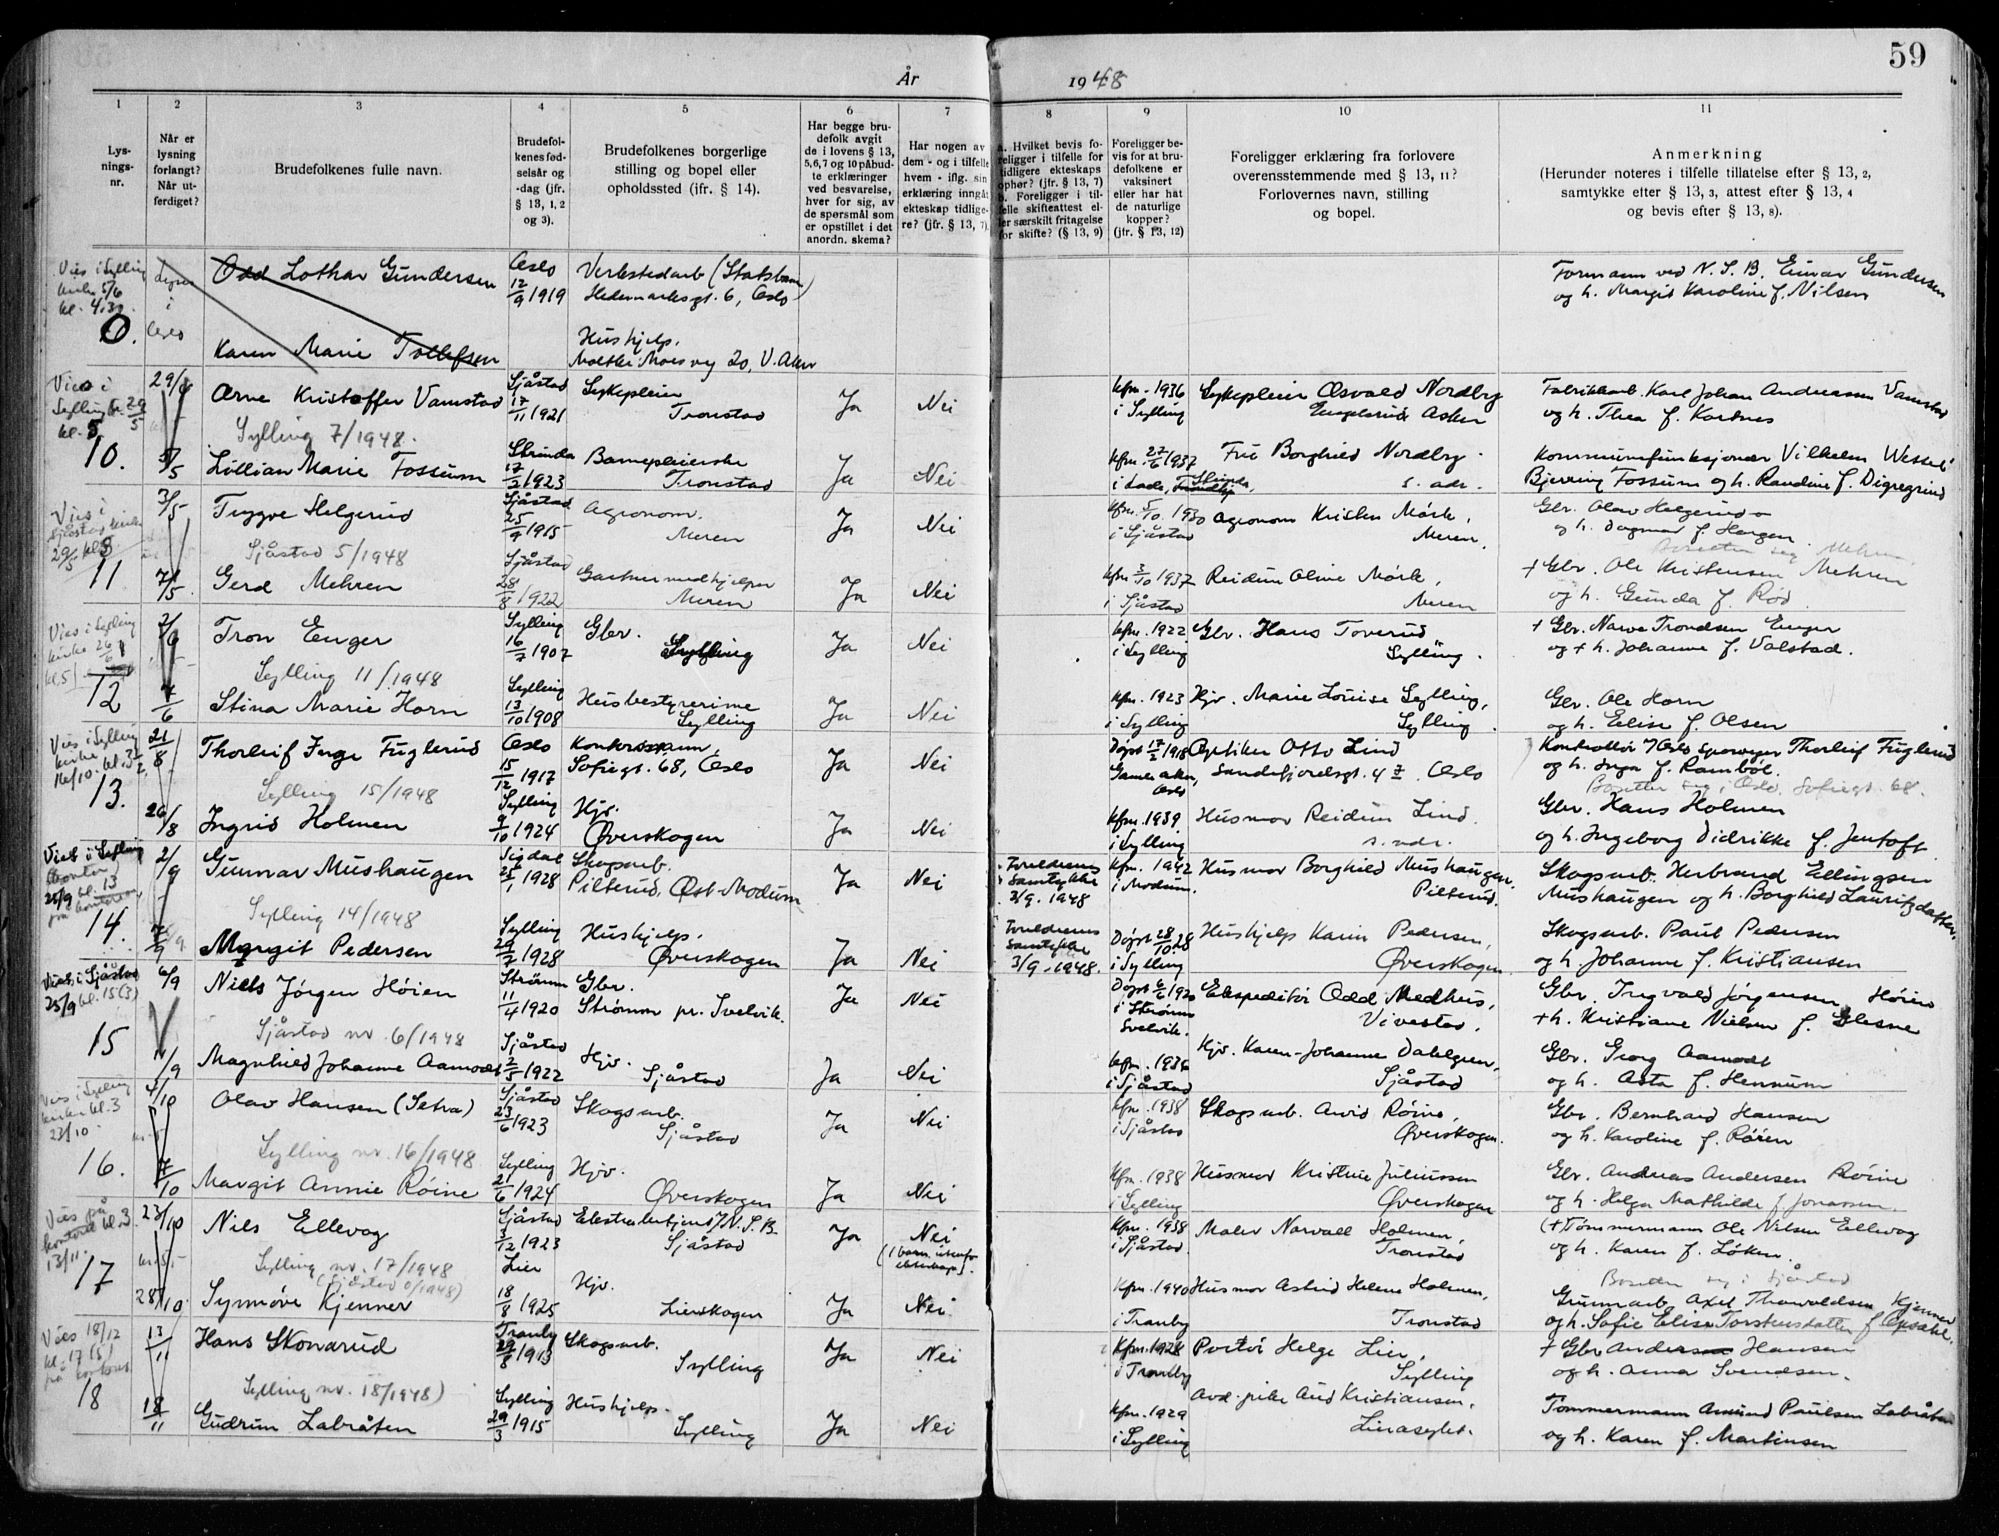 59
År 1948
1
2
3
4
5
6
7
8
9
10
11
Lys-
nings-
nr.
Når er
lysning
forlangt?
Når ut-
ferdiget?
Brudefolkenes fulle navn.
Brudefol-
kenes fød-
selsår og
-dag (jfr.
§ 13, 1, 2
og 3).
Brudefolkenes borgerlige
stilling og bopel eller
opholdssted (jfr. § 14).
Har begge bru-
defolk avgit
de i lovens § 13,
5,6,7 og 10 påbud-
te erklæringer
ved besvarelse,
hver for sig, av
de spørsmål som
er opstillet i det
anordn. skema?
Har nogen av
dem - og i tilfelle
hvem - iflg. sin
erklæring inngåt
ekteskap tidlige-
re? (jfr. § 13, 7).
a. Hvilket bevis fo-
religger i tilfelle for
tidligere ekteskaps
ophør? (jfr. § 13, 7)
b. Foreligger i til-
felle skifteattest el-
ler særskilt fritagelse
for skifte? (§ 13, 9)
Foreligger be-
vis for at bru-
defolkene er
vaksinert
eller har hat
de naturlige
kopper?
(jfr. § 13, 12)
Foreligger erklæring fra forlovere
overensstemmende med § 13, 11?
Forlovernes navn, stilling
og bopel.
Anmerkning
(Herunder noteres i tilfelle tillatelse efter § 13, 2,
samtykke efter § 13, 3, attest efter § 13, 4
og bevis efter § 13, 8).
Vies i Sylling
kirke 5/6
kl. 4.30
0.
i
Oslo
Odd Lothar Gundersen
Oslo
12/9 1919
Verkstedarb (Statsban)
Hedemarksgt. 6, Oslo
Formann ved N.S.B. Einar Gundersen
og h. Margit Karoline f. Nilsen
Karen Marie Tollefsen
Hushjelp.
Moltke Moes vej 20, V. Aker
Vies i
Sylling k. 29/5
kl. 5
10.
Arne Kristoffer Vamstad
Sjåstad
17/11 1921
Sykepleier
Tronstad
Ja
Nei
kfm. 1936
i Sylling
Sykepleier Osvald Nordby
Asker
Fabrikkarb. Karl Johan Andersen Vamstad
og h. Thea f. Kortnes
Sylling 7/1948.
5/5
Lillian Marie Fossum
Strinda
17/2 1923
Barnepleierske
Tronstad
Ja
Nei
kfm. 27/6 1937
i Lade, Strinda,
Fru Borghild Nordby
s. adr.
Kommunefunksjonær Vilhelm Wessel
Bjerring Fossum og h. Randine f. Digregrind
Vies i
Sjåstad kirke
29/5 kl. 3
11
3/5
Trygve Helgerud
Sjåstad
25/9 1915
Agronom.
Meren
Ja
Nei
kfm. 5/10 1930
i Sjåstad
Agronom Kristen Mørk,
Meren.
Gbr. Olav Helgerud
og h. Dagmar f. Horgen
Sjåstad 5/1948
Bosetter seg Mehren
7/5
Gerd Mehren
Sjåstad
28/8 1922
Gartnermedhjelper
Meren
Ja
Nei
kfm. 3/10 1937
i Sjåstad
Reidun Oline Mørk,
Meren
+ Gbr. Ole Kristensen Mehren
og h. Gunda f. Rød.
Vies i Sylling
kirke 26/6
kl. 5
12
2/6
Tron Enger
Sylling
16/7 1907
Gbr.
Sylling
Ja
Nei
kfm. 1922
i Sylling
Gbr. Hans Toverud,
Sylling.
+ Gbr. Narve Trondsen Enger
og + h. Johanne f. Valstad.
Sylling 11/1948
7/6
Stina Marie Horn
Sylling
13/10 1908
Husbestyrerinne
Sylling
Ja
Nei
kfm. 1923
i Sylling
Hjv. Marie Louise Sylling,
Sylling.
Gbr. Ole Horn
og h. Elise f. Olsen
Vies i Sylling
kirke
16/10. kl. 3½
13.
21/8
Thorleif Inge Fuglerud
Oslo
15/12 1917
Kontormann,
Sofiegt. 68, Oslo
Ja
Nei
Døpt 17/2 1918
Gamle Aker,
Oslo
Optiker Otto Lind
Sandefjordsgt. 4 . Oslo
Kontrollør v/Oslo Sporveger Thorleif Fuglerud
og h. Inga f. Rambøl.
Sylling 15/1948
Bosetter seg i Oslo, Sofiegt. 68.
26/8
Ingrid Holmen
Sylling
9/10 1924
Hjv.
Øverskogen
Ja
Nei
kfm. 1939
i Sylling
Husmor Reidun Lind.
s. adr.
Gbr. Hans Holmen
og h. Ingeborg Didrikke f. Jentoft
Viet i Sylling
kontor
25/9 kl. 13
på kontoret
14.
2/9
Gunnar Mushaugen
Sigdal
25/1 1928
Skogsarb.
Pilterud, Øst-Modum
Ja
Nei
Foreldrenes
samtykke
3/9. 1948
kfm. 1942
i Modum.
Husmor Borghild Mushaugen,
Pilterud.
Skogsarb. Herbrand Ellingsen
Mushaugen og h. Borghild Lauritzdatter.
Sylling 14/1948
7/9
Margit Pedersen
Sylling
29/7 1928
Hushjelp.
Øverskogen
Ja
Nei
Foreldrenes
samtykke
3/9. 1948.
Døpt 28/10 28
i Sylling
Hushjelp Karin Pedersen,
Øverskogen
Skogsarb. Paul Pedersen
og h. Johanne f. Kristiansen
Viet i Sjåstad
25/9 kl. 15 (3)
15
6/9
Niels Jørgen Høien
Strømm
11/4 1920
Gbr.
Strømm pr. Svelvik.
Ja
Nei
Døpt 6/6 1920
i Strømm
Svelvik.
Ekspeditør Odd Medhus,
Vivestad.
Gbr. Ingvald Jørgensen Høien
+ h. Kristiane Nielsen f. Glesne
Sjåstad nr. 6/1948
11/9
Magnhild Johanne Aamodt
Sjåstad
2/5 1922
Hjv.
Sjåstad
Ja
Nei
kfm. 1936
i Sjåstad
Hjv. Karen-Johanne Dahlgren,
Sjåstad
Gbr. Georg Aamodt
og h. Asta f. Hennum
Vies i Sylling
kirke kl. 3
23/10.
16.
4/10
Olav Hansen (Setra)
Sjåstad
23/6 1923
Skogsarb.
Sjåstad
Ja
Nei
kfm. 1938
i Sjåstad
Skogsarb. Arvid Røine,
Øverskogen.
Gbr. Bernhard Hansen
og h. Karoline f. Røren
Sylling nr. 16/1948
7/10
Margit Annie Røine
Sylling
21/6 1924
Hjv.
Øverskogen
Ja
Nei
kfm. 1938
i Sylling
Husmor Kristine Juliussen
Øverskogen
Gbr. Andreas Andersen Røine
og h. Helga Mathilde f. Jonassen.
Vies på
kontoret kl. 3
13/11.
17
23/10
Nils Ellevog
Sjåstad
3/12 1923
Ekstrabetjent v/N.S.B.
Sjåstad
Ja
Nei
(1 barn utenfor
ekteskap).
Kfm. 1938
i Sjåstad.
Maler Narvall Holmen,
Tronstad
(+ Tømmermann Ole Nilsen Ellevog
og h. Karen f. Løken.
Sylling nr. 17/1948
(Sjåstad 0/1948)
Bosetter seg i Sjåstad
28/10
Synnøve Kjenner
Lier
18/8 1925
Hjv.
Lierskogen
Ja
Nei
Kfm. 1940
i Tranby
Husmor Astrid Helene Holmen,
Tronstad
Grunnarb. Axel Thorvaldsen Kjenner
og h. Sofie Elise Torstensdatter f. Opsahl.
Vies 18/12
kl. 17 (5)
på kontoret
18
13/11
Hans Skonsrud
Tranby
29/8 1913
Skogsarb.
Sylling
Ja
Nei
Kfm. 1928
i Tranby
Portør Helge Lier,
Sylling
+ Gbr Anders Hansen
og h. Anna Svendsen.
Sylling nr. 18/1948)
18/11
Gudrun Labråten
Sylling
29/3 1915
Hushjelp.
Sylling
Ja
Nei
Kfm. 1929
i Sylling
Avd. pike Aud Kristiansen,
Lierasylet.
Tømmermann Amund Paulsen Labråten
og h. Karen f. Martinsen